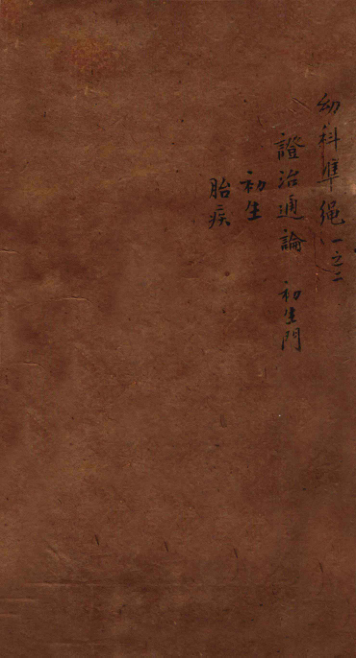 幼科準绳一之二
證治通論 初生門
初生
胎疾